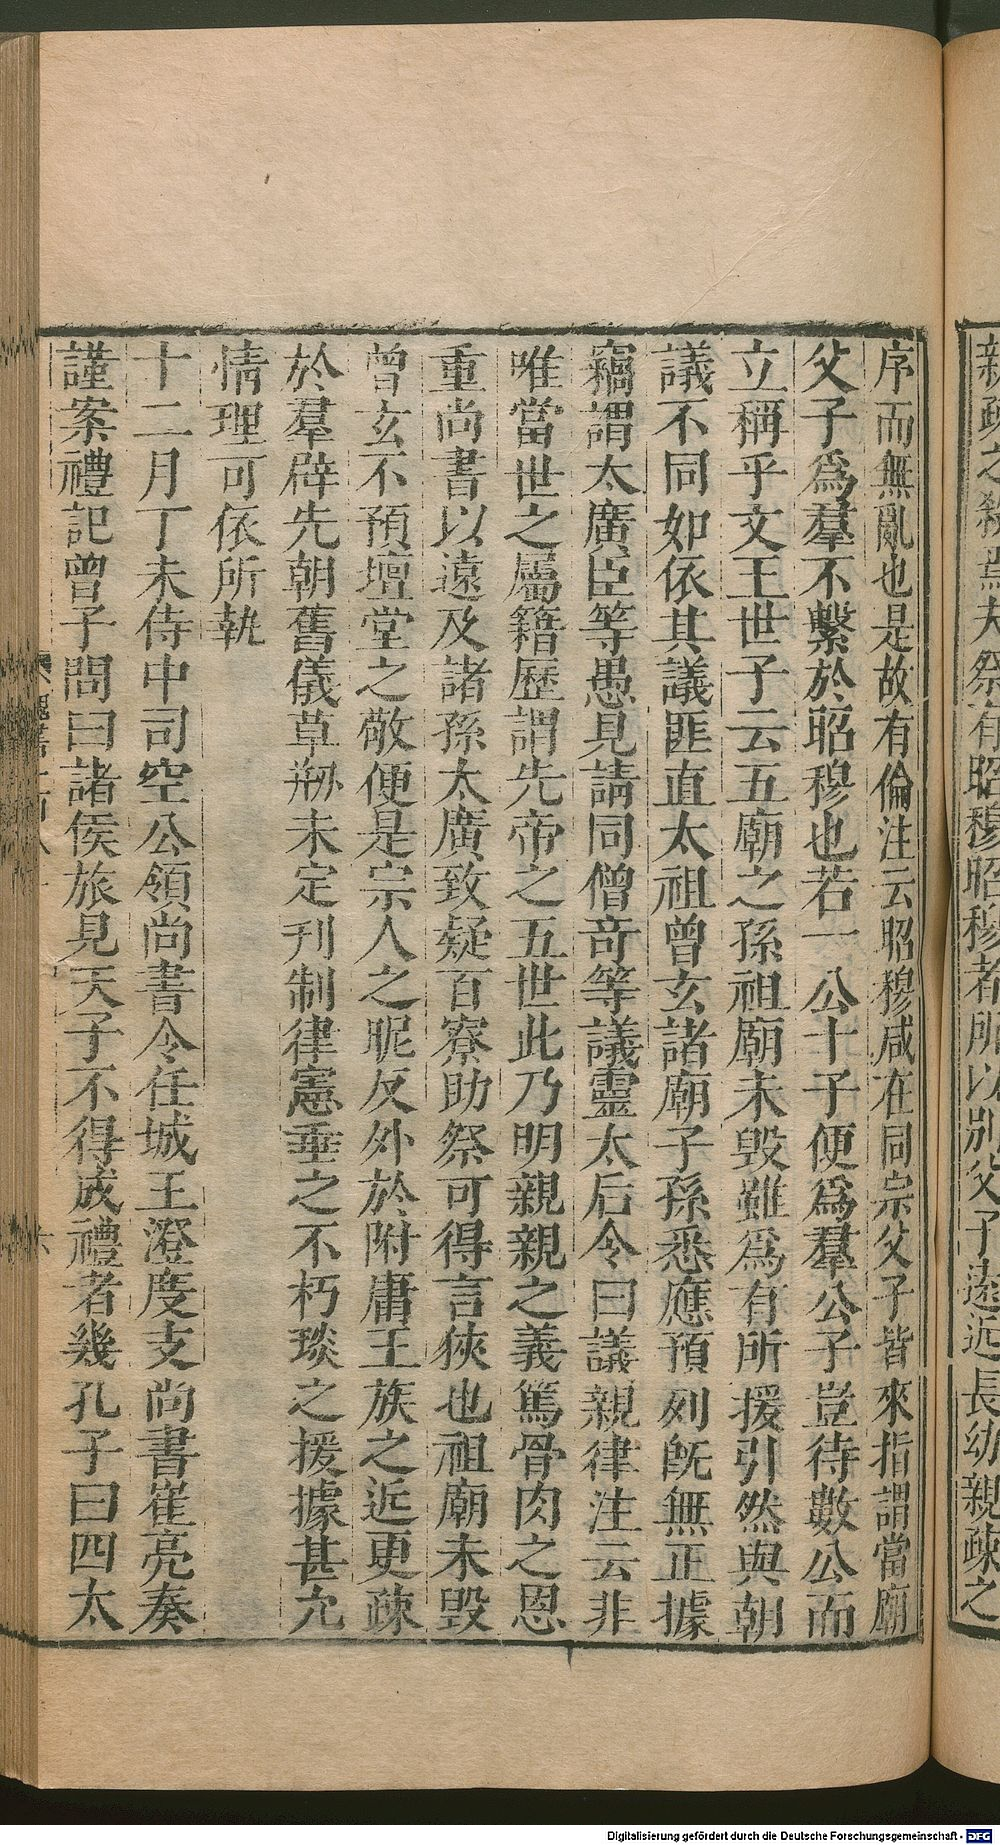 親疎之殺焉夫祭有昭穆昭穆者所以別父子遠近長幼親疎之
序而無亂也是故有倫注云昭穆咸在同宗父子皆來指謂當廟
父子爲羣不繫於昭穆也若一公十子便爲羣公子豈待數公而
立稱乎文王世子云五廟之孫祖廟未毀雖爲有所援引然與朝
議不同如依其議匪直太祖曾玄諸廟子孫悉應預列旣無正據
竊謂太廣臣等愚見請同僧奇等議靈太后令曰議親律注云非
唯當世之屬籍歷謂先帝之五世此乃明親親之義篤骨肉之恩
重尚書以遠及諸孫太廣致疑百寮助祭可得言狹也祖廟未毀
曾玄不預壇堂之敞便是宗人之昵反外於附庸王族之近更疎
於羣辟先朝舊儀草刱未定刋制律憲垂之不朽琰之援據甚允
情理可依所執
十二月丁未侍中司空公領尚書令任城王澄度支尚書崔亮奏
謹案禮記曾子問曰諸侯旅見天子不得成禮者幾孔子曰四太
六
Digitalisierung gefördert durch die Deutsche Forschungsgemeinschaft - DFG